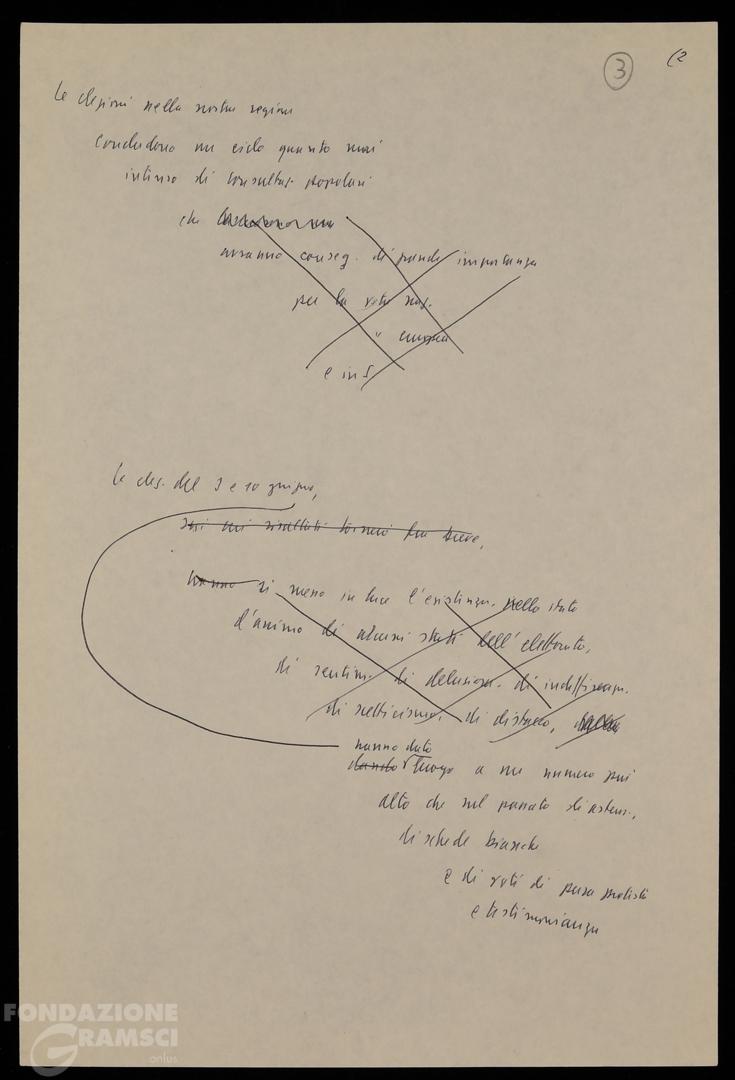 3
(2
Le elezioni nella nostra regione
concludono un ciclo quanto mai
intenso di consultaz. popolari
che
avranno conseg. di grande importanza
per la vita naz.
" europea
e in S.
Le elez. del 3 e 10 giugno,
sui cui risultati tornerò fra breve,
hanno si meno in luce l'esistenza, nello stato
d'animo di alcuni strati dell'elettorato,
di sentim. di delusione, di indifferenza,
di scetticismo, di distacco,
hanno dato
dando luogo a un numero più
alto che nel passato di astens.,
di schede bianche
e di voti di pura protesta
e testimonianza
FONDAZIONE
GRAMSCI
onlus